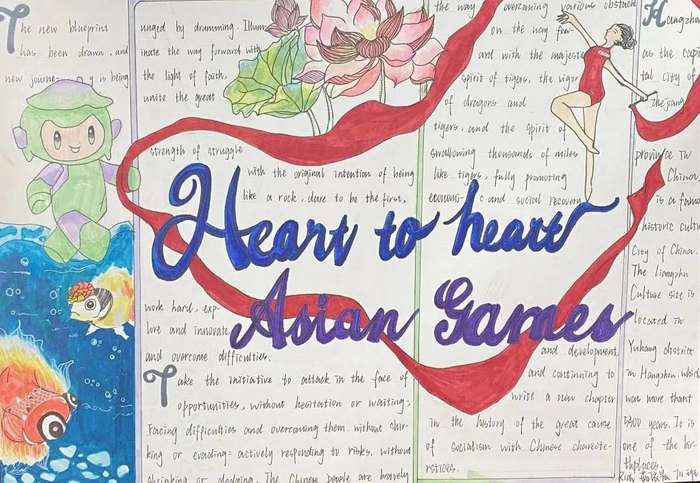 The new blueprint
has been drawn, and
new journe y is being
unged by drumming. Illum
inate the way forward with
the light of faith,
unite the great
strength of struggle
with the original intention of being
like a rock, dare to be the first,
Heart to heart
Asian Games
work hard, exp
lore and innovate
and overcome difficulties.
Take the initiative to attack in the face of
opportunities, without hesitation or waiting;
Facing difficulties and overcoming them without shir-
king or evading; actively responding to risks, without
shrinking or dodging. The Chinese people are bravely
the way overcoming various obstacle
on the way for
and with the majestic
spirit of tigers, the vigor
of dragons and
tigers, and the spirit of
swallowing thousands of miles
like tigers, fully promoting
c and social recovery
and development
and continuing to
write a new chapter
in the history of the great cause
of socialism with Chinese characte-
ristics.
Hangzho
as the capi
tal city of
Zhejiang
province in
China,
is a famo
historic cultur
City of China.
The Liangzhu
Culture site is
located in
Yuhang district
in Hangzhou, which
was more than
5300 years. It is
one of the bir-
thplaces.